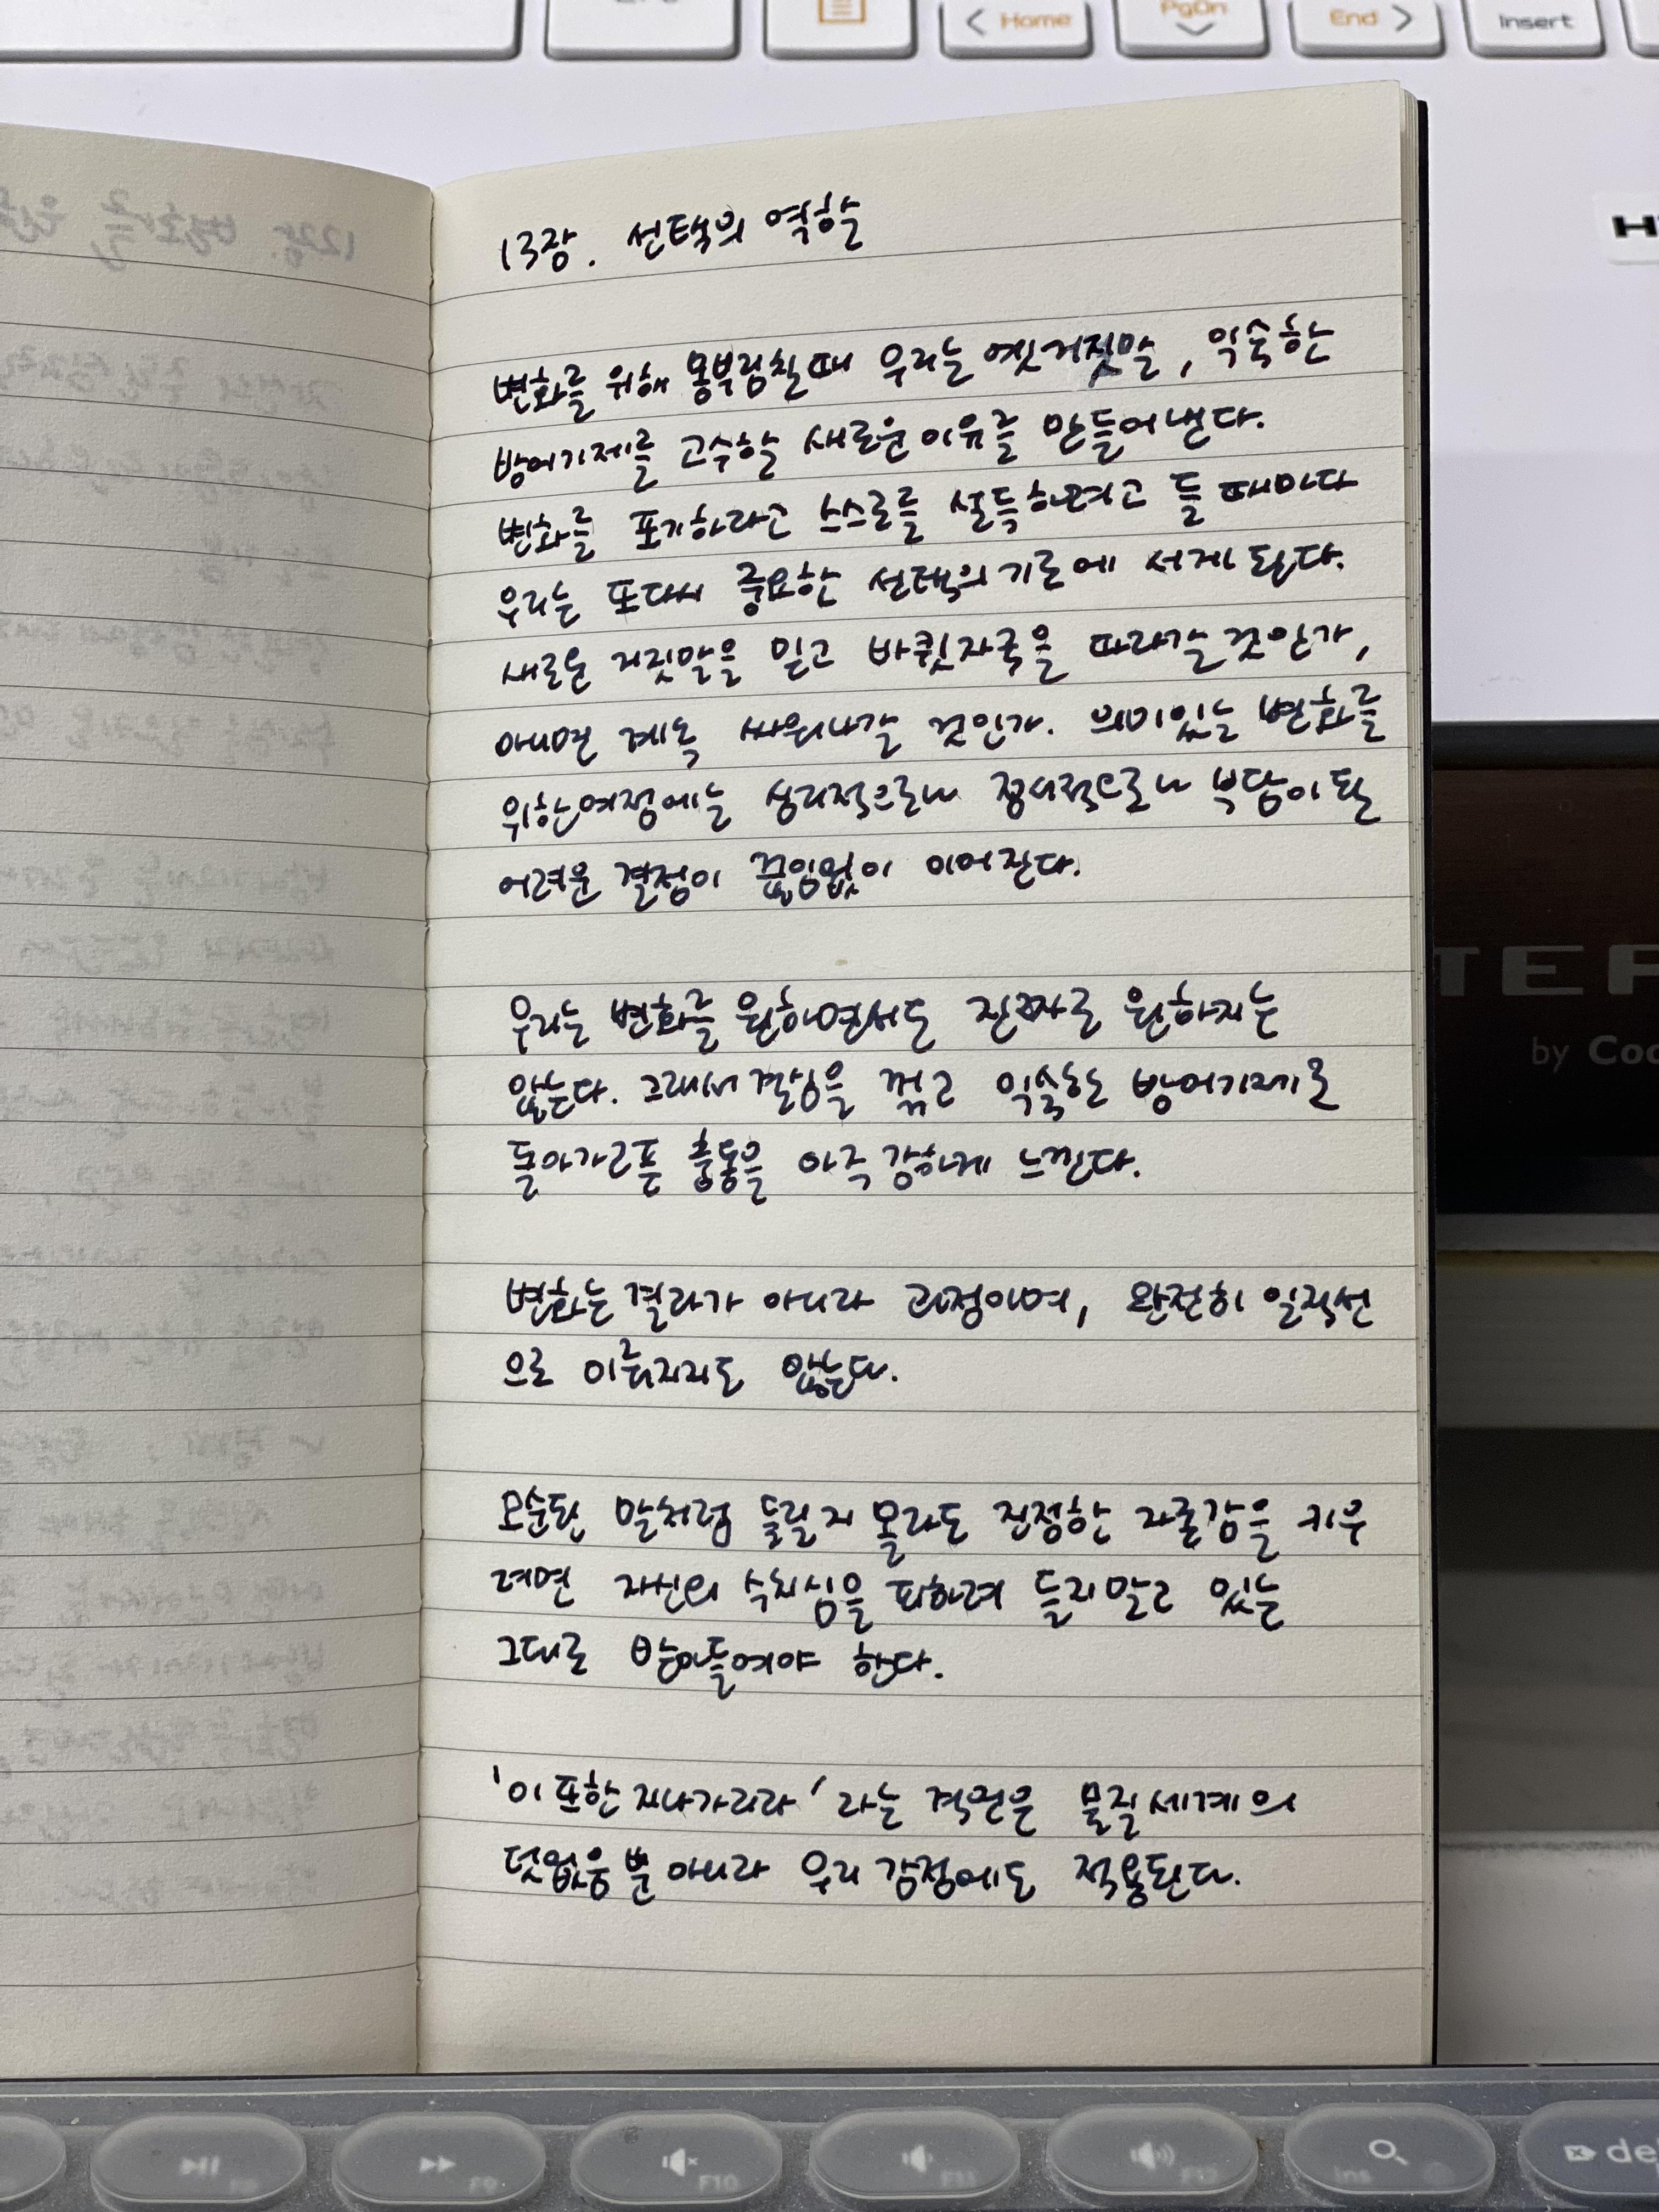 < Home
PgDn
End >
Insert
13장. 선택의 역할
변화를 위해 몸부림칠때 우리는 옛거짓말, 익숙한
방어기제를 고수할 새로운이유를 만들어낸다.
변화를 포기하라고 스스로를 설득하려고 들 때마다
우리는 또다시 중요한 선택의기로에 서게 된다.
새로운 거짓말을 믿고 바큇자국을 따라갈 것인가,
아니면 계속 싸워나갈 것인가. 의미있는 변화를
위한여정에는 심리적으로나 정서적으로나 부담이 될
어려운 결정이 끊임없이 이어진다.
우리는 변화를 원하면서도 진짜로 원하지는
않는다. 그래서 결심을 꺾고 익숙한 방어기제로
돌아가고픈 충동을 아주 강하게 느낀다.
변화는 결과가 아니라 과정이며, 완전히 일직선
으로 이뤄지지도 않는다.
모순된 말처럼 들릴지 몰라도 진정한 자존감을 키우
려면 자신의 수치심을 피하려 들지말고 있는
그대로 받아들여야 한다.
'이 또한 지나가리라' 라는 격언은 물질세계의
덧없음 뿐 아니라 우리 감정에도 적용된다.
TER
by Coo
F9
F10
F11
F12
ins
del